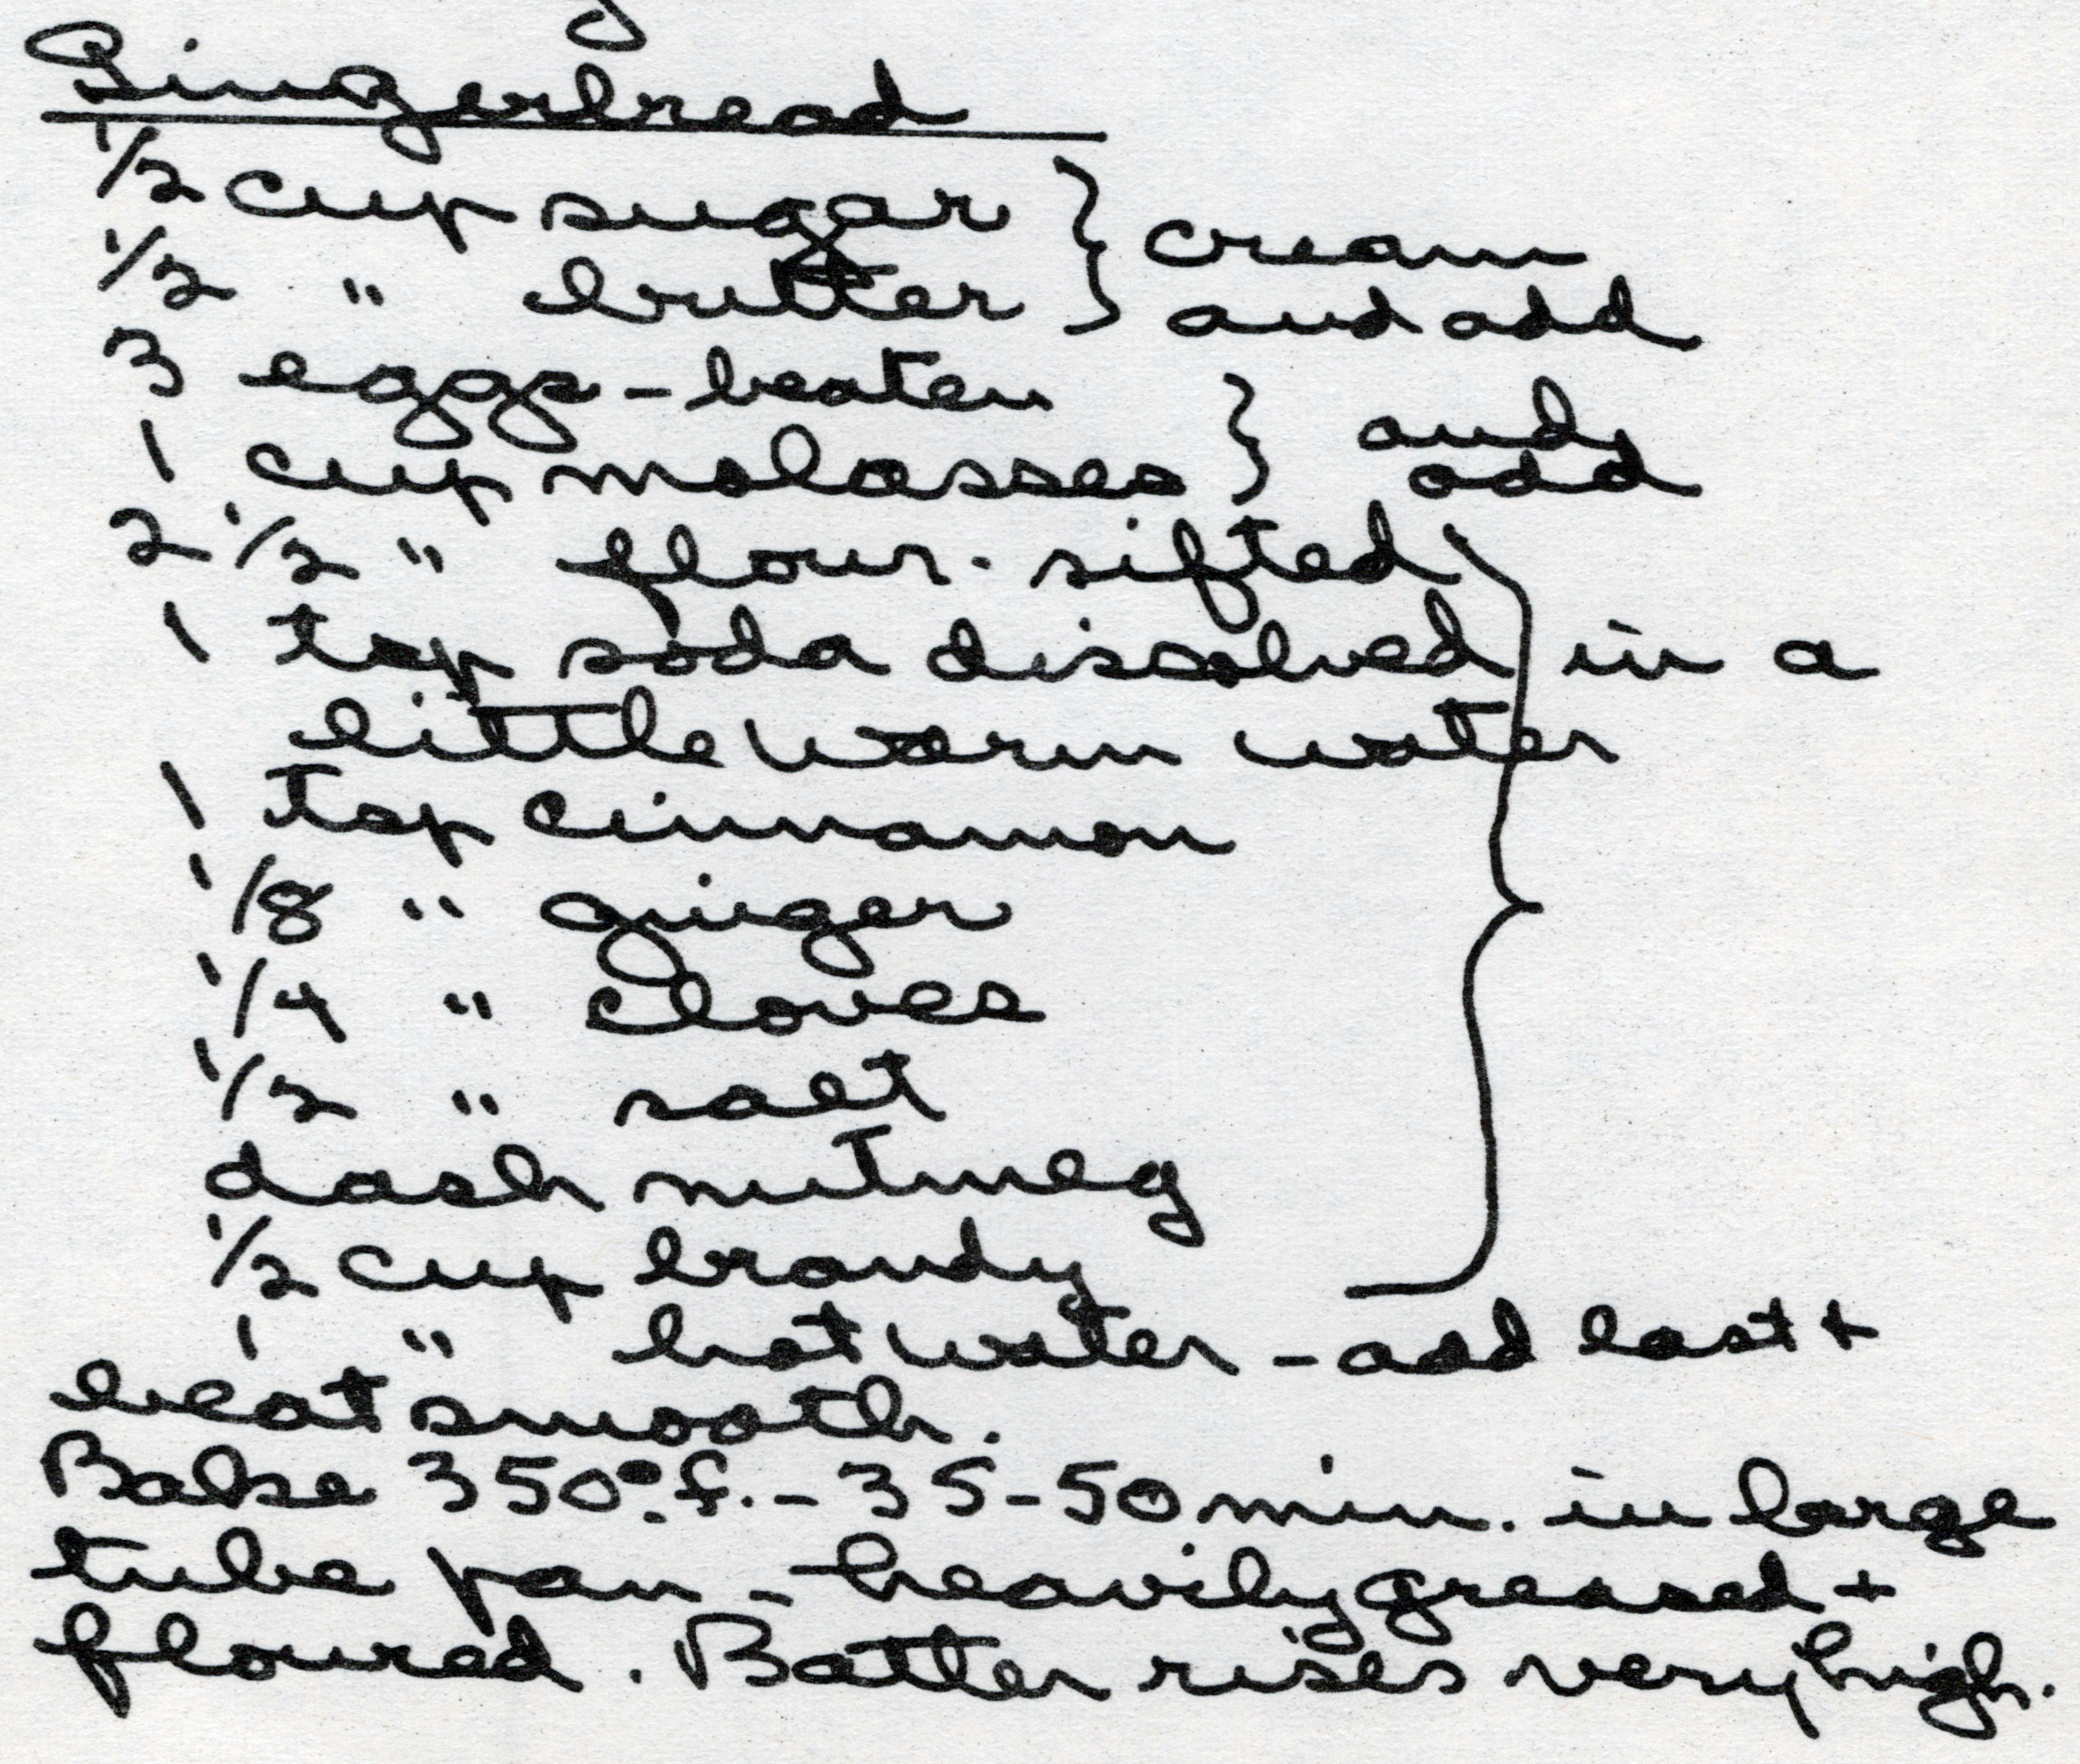 Gingerbread
1/2 cup sugar } cream
1/2 " butter } and add
3 eggs - beaten } and
1 cup molasses } add
2 1/2 " flour - sifted }
1 tsp soda dissolved in a
little warm water
1 tsp cinnamon
1/8 " ginger
1/4 " cloves
1/2 " salt
dash nutmeg
1/2 cup brandy
1 " hot water - add last +
beat smooth.
Bake 350° f. - 35-50 min. in large
tube pan - heavily greased +
floured. Batter rises very high.